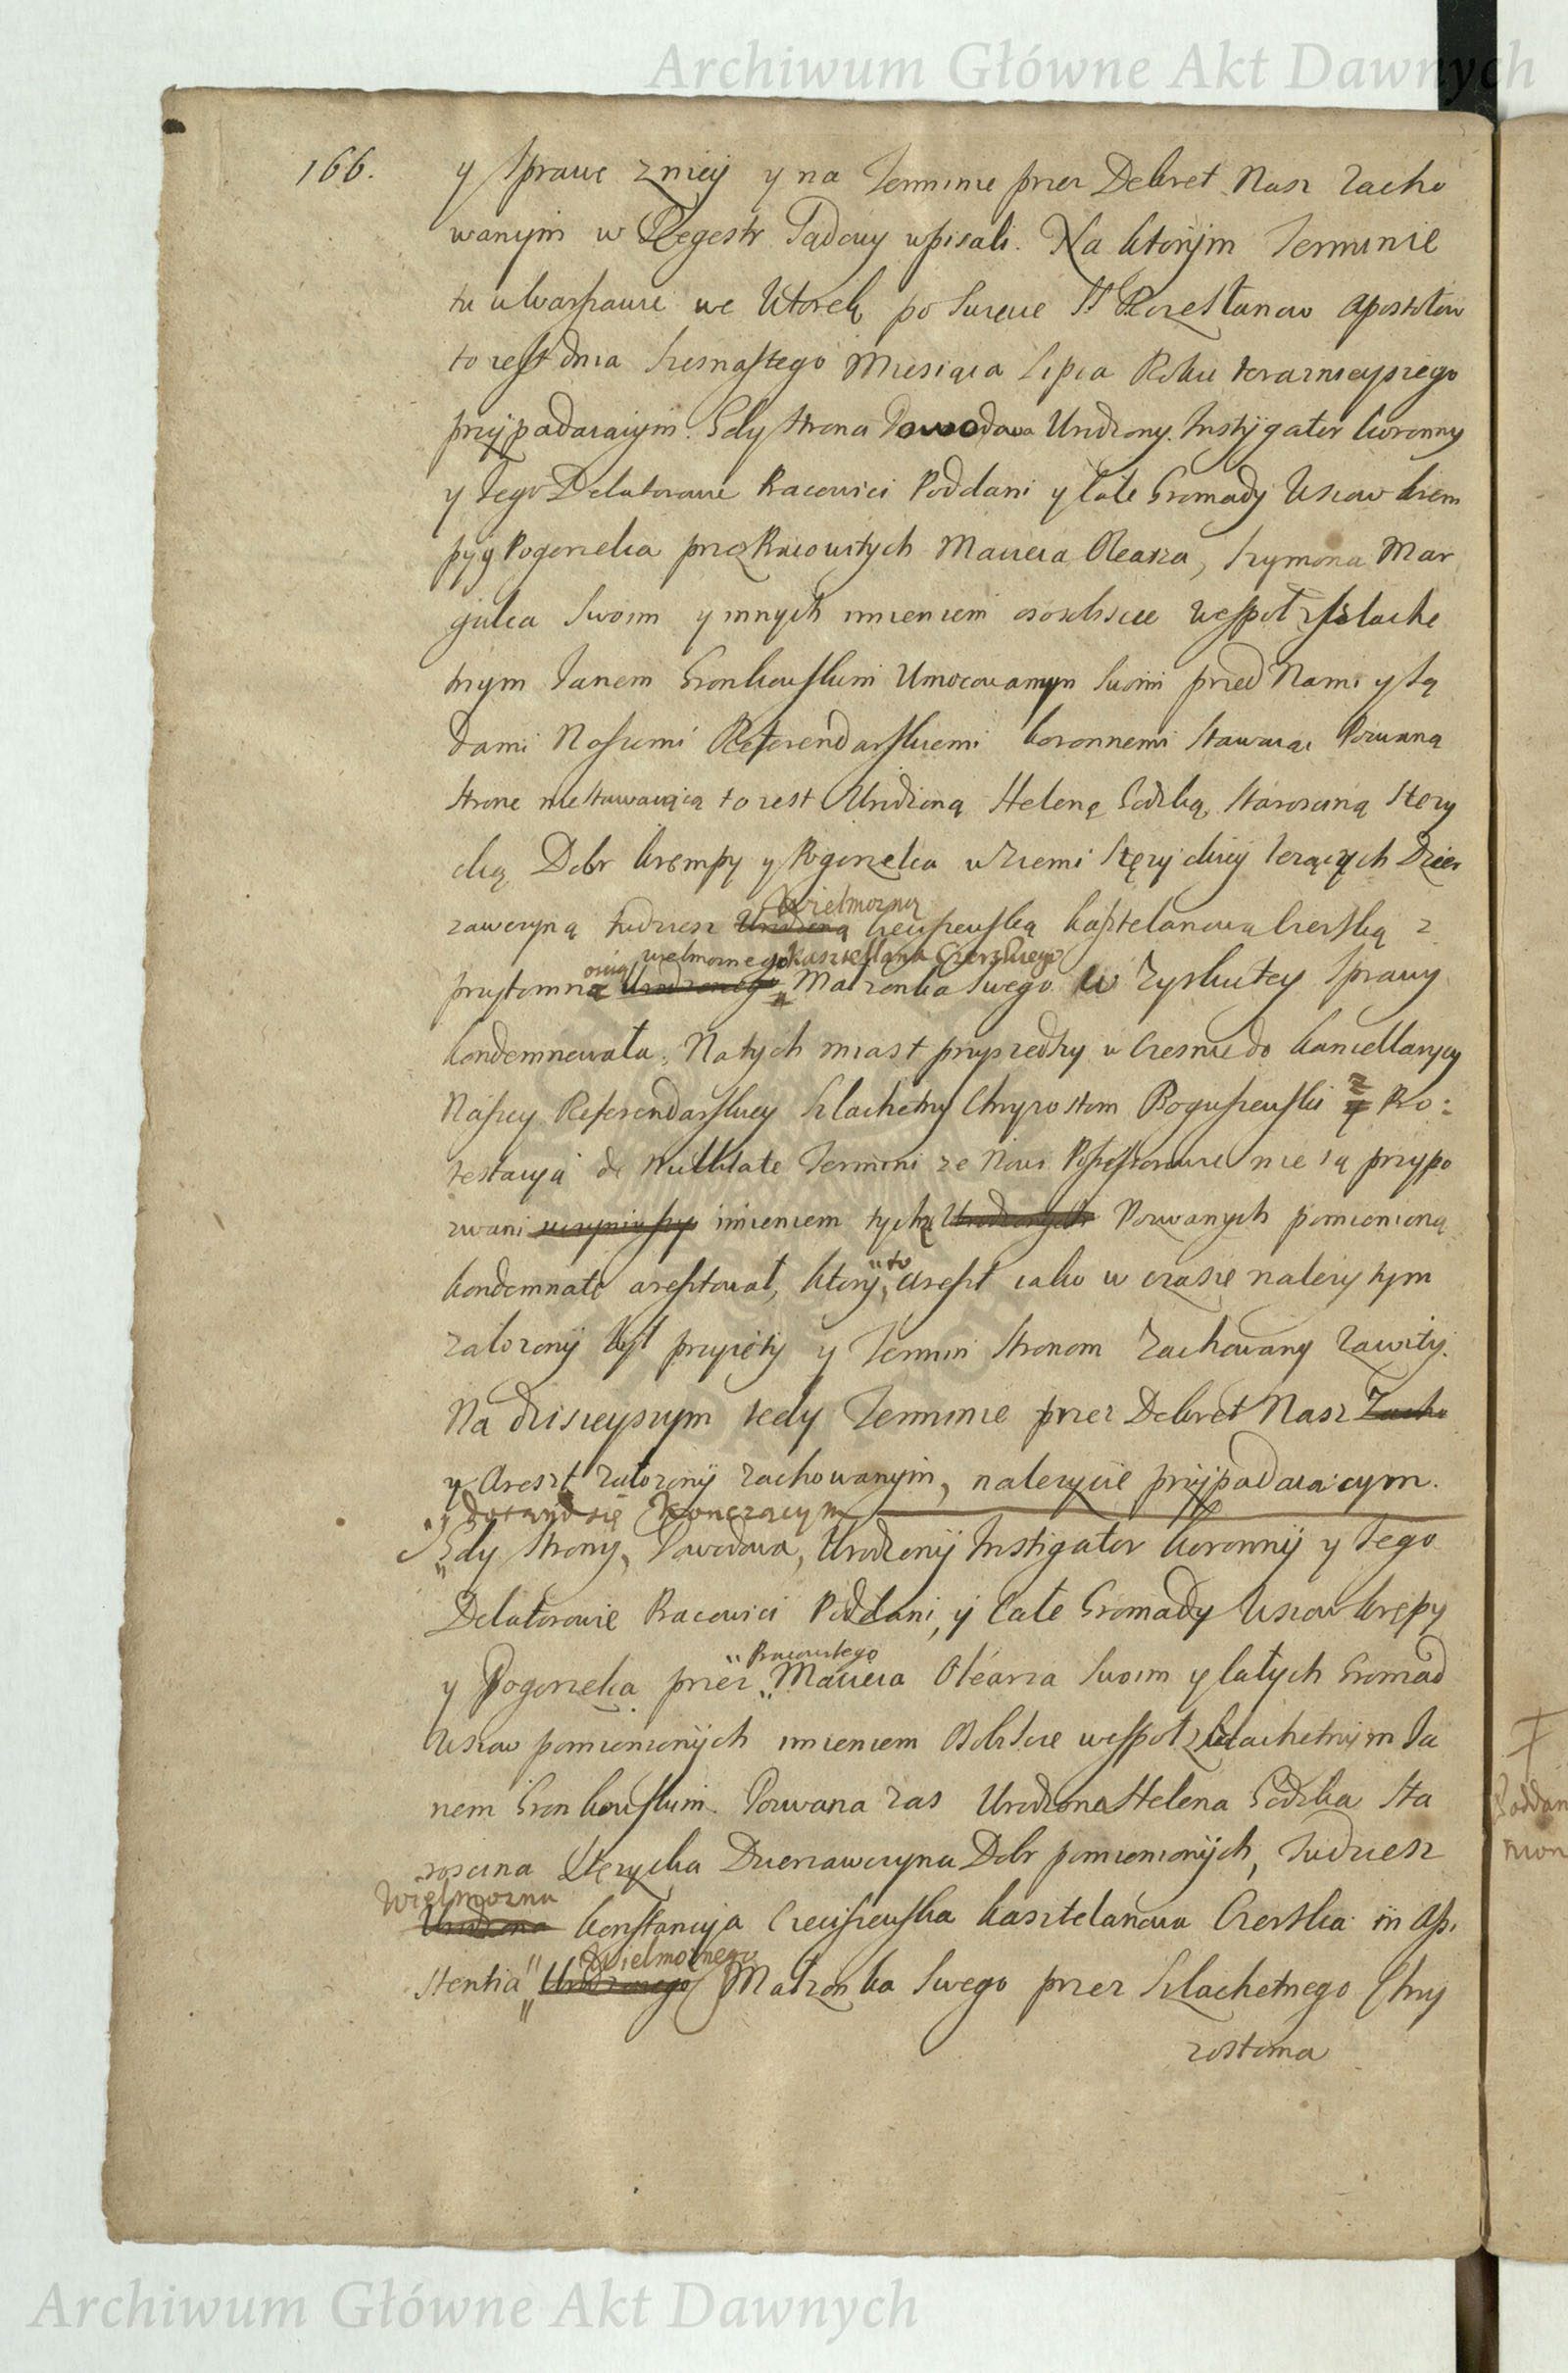 Archiwum Główne Akt Dawnych
166.
y Sprawe z niey y na Terminie przez Dekret Nasz zacho
wanym w Regestr Sądowy wpisali. Na ktorym Terminie
tu w Warszawie we Wtorek po Swięcie SS Rozesłanow Apostołow
to iest dnia Szesnastego Miesiąca Lipca Roku teraznieyszego
przypadaiącym. Gdy Strona Powodowa Urodzony Instygator koronny
y Jego Delatorowie Pracowici Poddani y całe Gromady Wsiow krem
py y Pogorzelca przez Pracowitych Macieia Olearza, Szymona Mar
gulca Swoim y innych imieniem osobiscie wespoł z Szlache
tnym Janem Gronkowskim Umocowanym Swoim przed Nami y Są
dami Naszemi Referendarskiemi koronnemi Stawaiąc Pozwaną
Strone niestawaiącą to iest Urodzoną Helenę Godzką Starosciną Stęzy
cką Dobr krempy y Pogorzelca w Ziemi Stęzyckiey lezących Dzier
Wielmozną
zawczyną tudziesz Urodzoną Cieciszewską kasztelanową Czerską z
oscią Wielmoznego Kasztellana Czerskiego
przytomna Urodzonego Małzonka Swego w zysku tey Sprawy
kondemnowała. Natych miast przyszedszy w Czesnie do kancellaryey
Naszey Referendarskiey Szlachetny Chryzostom Boguszewski z Pro:
testacyą de Nullitate Termini ze Nowi Possessorowie nie są przypo
zwani uczyniwszy imieniem tych Urodzonych Pozwanych pomienioną
to
kondemnate aresztował, ktory areszt iako w czasie nalezytym
załozony był przyięty y Termin Stronom zachowany zawity.
Na dzisieyszym tedy Terminie przez Dekret Nasz Zacho
y Areszt załozony zachowanym, nalezycie przypadaiącym.
y dotąd się konczącym
Gdy Strony, Powodowa, Urodzony Instigator koronny y Jego
Delatorowie Pracowici Poddani, y całe Gromady Wsiow krępy
Pracowitego
y Pogorzelca przez Macieia Olearza Swoim y całych Gromad
Wsiow pomienionych imieniem Osobiscie wespoł z Szlachetnym Ja
nem Gronkowskim. Pozwana zas Urodzona Helena Godzka Sta
roscina Stęzycka Dzierzawczyna Dobr pomienionych, tudziesz
Wielmozna
Urodzona konstancyja Cieciszewska kasztelanowa Czerska in Assi
Wielmoznego
stentia Urodzonego Małzonka Swego przez Szlachetnego Chry
zostoma
Archiwum Główne Akt Dawnych